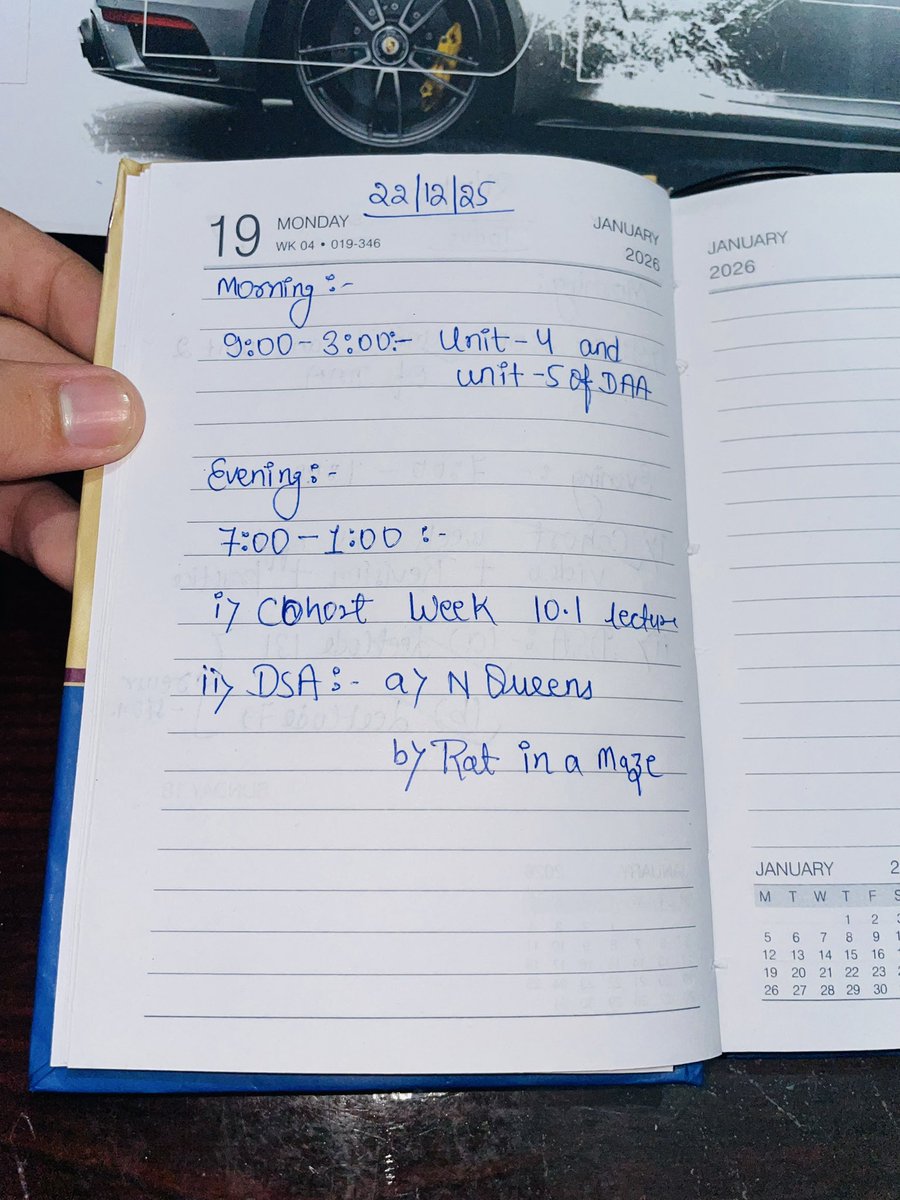 22/12/25
19 MONDAY JANUARY
WK 04 • 019-346 2026
Morning :-
9:00 - 3:00:- Unit - 4 and
unit - 5 of DAA
Evening :-
7:00 - 1:00 :-
i> Cohort Week 10.1 lecture
ii> DSA :- a> N Queens
b> Rat in a Maze
JANUARY
2026
JANUARY 2
M T W T F S
1 2 3
5 6 7 8 9 1
12 13 14 15 16 1
19 20 21 22 23 2
26 27 28 29 30